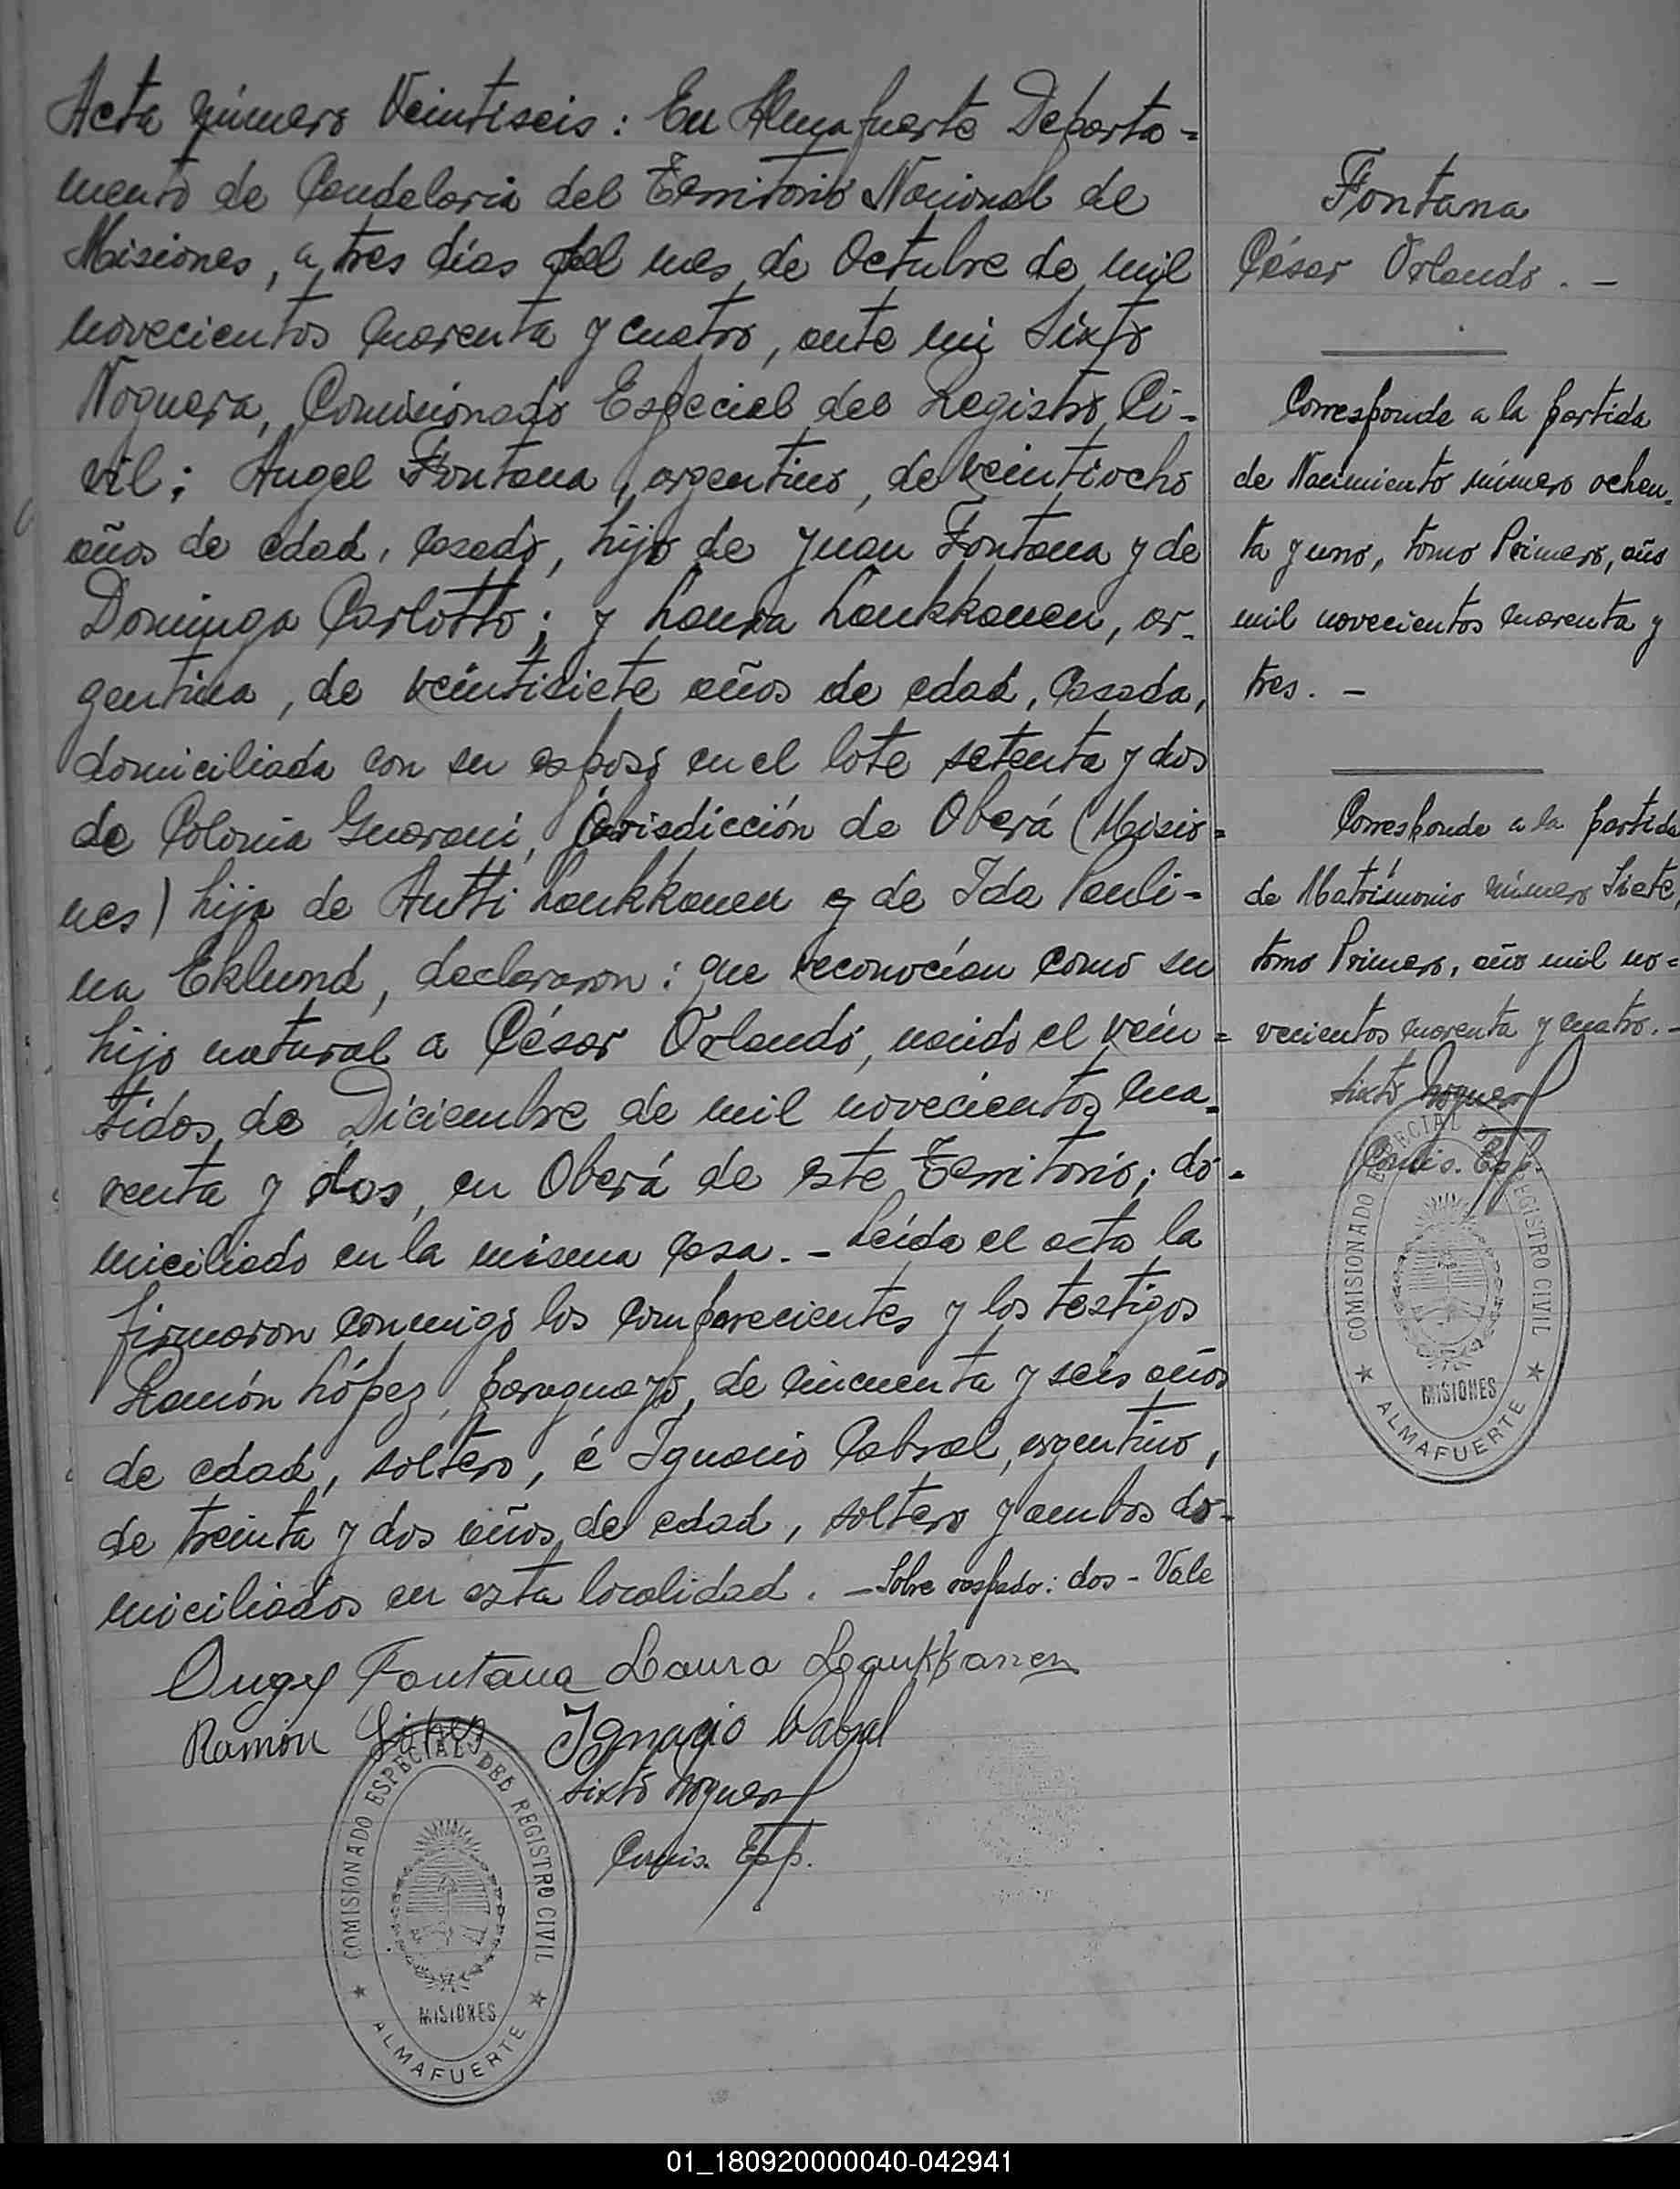 Acta número Veintiseis: En Almafuerte Departa=
mento de Candelaria del Territorio Nacional de
Misiones, a tres días del mes de Octubre de mil
novecientos cuarenta y cuatro, ante mi Sixto
Noguera, Comisionado Especial del Registro Ci-
vil; Angel Fontana, argentino, de veintiocho
años de edad, casado, hijo de Juan Fontana y de
Dominga Carlotto; y Laura Laukkanen, ar-
gentina, de veintisiete años de edad, casada,
domiciliada con su esposo en el lote setenta y dos
de Colonia Guaraní, jurisdicción de Oberá (Misio=
nes) hija de Antti Laukkanen y de Ida Pauli-
na Eklund, declararon: que reconocían como su
hijo natural a César Orlando, nacido el vein=
tidos de Diciembre de mil novecientos cua-
renta y dos, en Oberá de este Territorio; do-
miciliado en la misma casa. - Leída el acta la
firmaron conmigo los comparecientes y los testigos
Ramón López, paraguayo, de cincuenta y seis años
de edad, soltero, é Ignacio Cabral, argentino,
de treinta y dos años de edad, soltero y ambos do-
miciliados en esta localidad. - Sobre raspado: dos - Vale
Angel Fontana Laura Laukkanen
Ramón López Ignacio Cabral
Sixto Noguera
Comis. Esp.
COMISIONADO ESPECIAL DEL REGISTRO CIVIL
MISIONES
★ ALMAFUERTE ★
Fontana
César Orlando. -
Corresponde a la partida
de Nacimiento número ochen-
ta y uno, tomo Primero, año
mil novecientos cuarenta y
tres. -
Corresponde a la partida
de Matrimonio número Siete,
tomo Primero, año mil no=
vecientos cuarenta y cuatro. -
Sixto Noguera
Comis. Esp.
COMISIONADO ESPECIAL DEL REGISTRO CIVIL
MISIONES
★ ALMAFUERTE ★
01_180920000040-042941